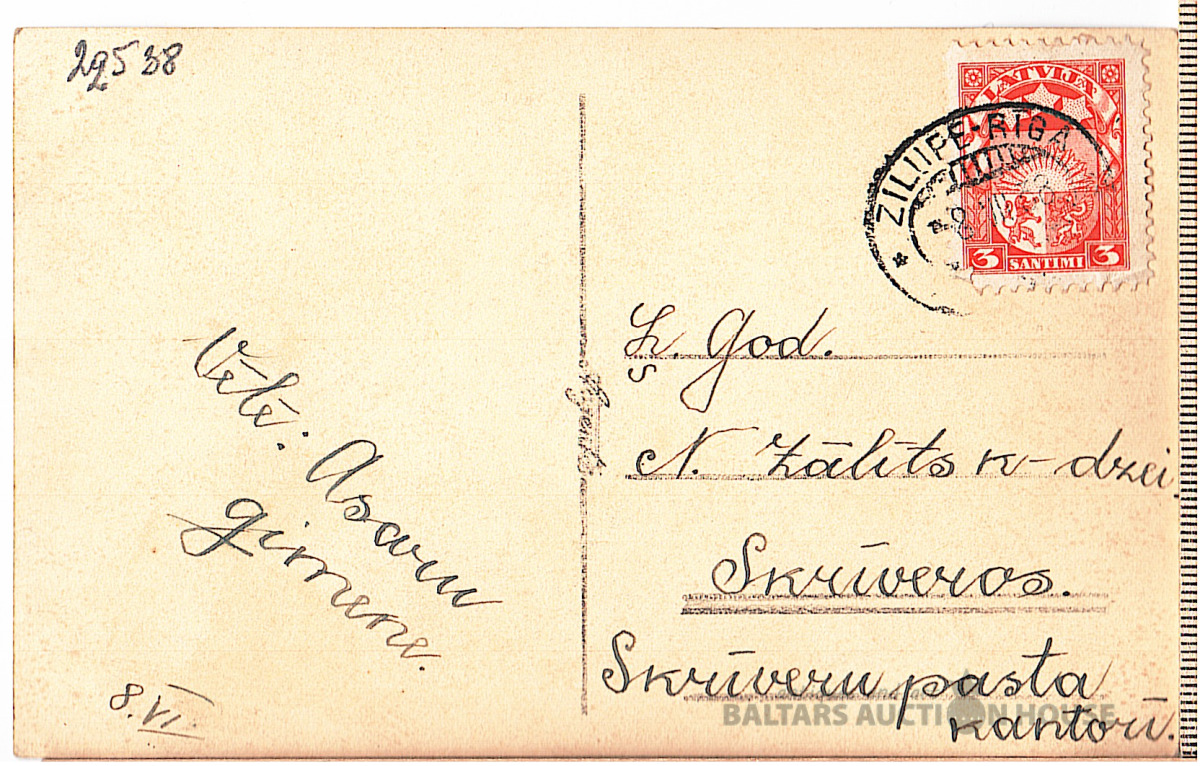 29538
LATVIJA
ZILUPE-RIGA
3 SANTIMI 3
Ļ. God.
N. Zālīts k-dzei
Skrīveros.
Skrīveru pasta
kantorī.
Vēlē: Asaru
ģimene.
8.VI.
BALTARS AUCTION HOUSE